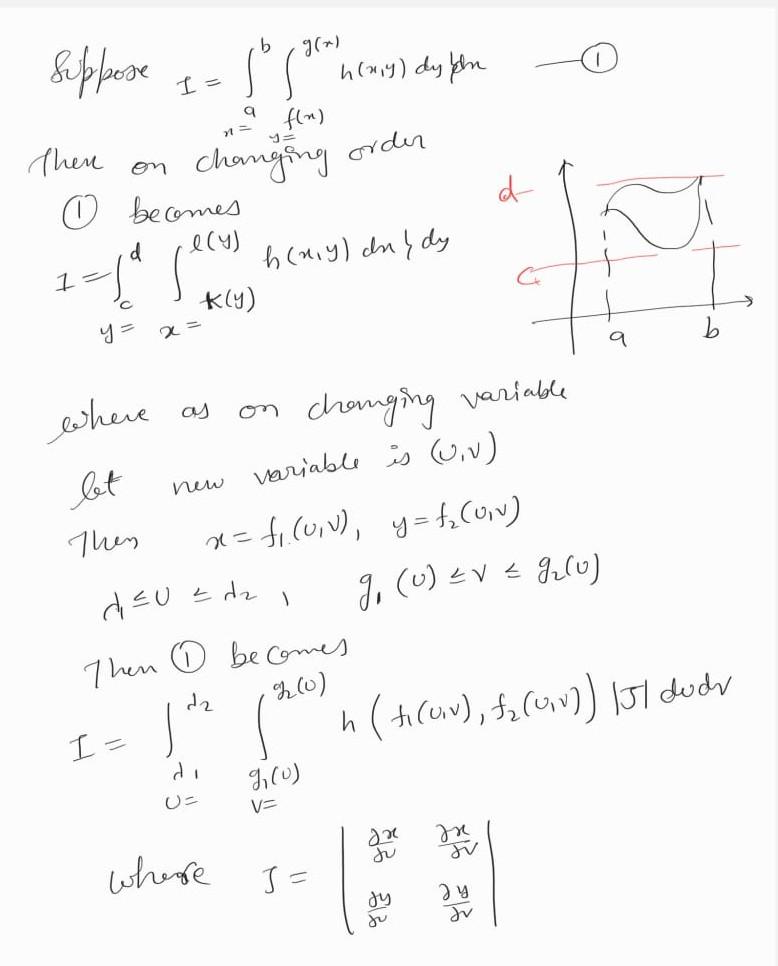 Suppose I = ∫_{x=a}^{b} ∫_{y=f(x)}^{g(x)} h(x,y) dy dx —①
Then on changing order
① becomes
I = ∫_{y=c}^{d} ∫_{x=k(y)}^{l(y)} h(x,y) dx} dy
d
c
a b
where as on changing variable
let new variable is (u,v)
Then x = f₁(u,v), y = f₂(u,v)
d₁ ≤ u ≤ d₂, g₁(u) ≤ v ≤ g₂(u)
Then ① becomes
I = ∫_{u=d₁}^{d₂} ∫_{v=g₁(u)}^{g₂(u)} h(f₁(u,v), f₂(u,v)) |J| du dv
where J = | ∂x/∂u ∂x/∂v |
| ∂y/∂u ∂y/∂v |